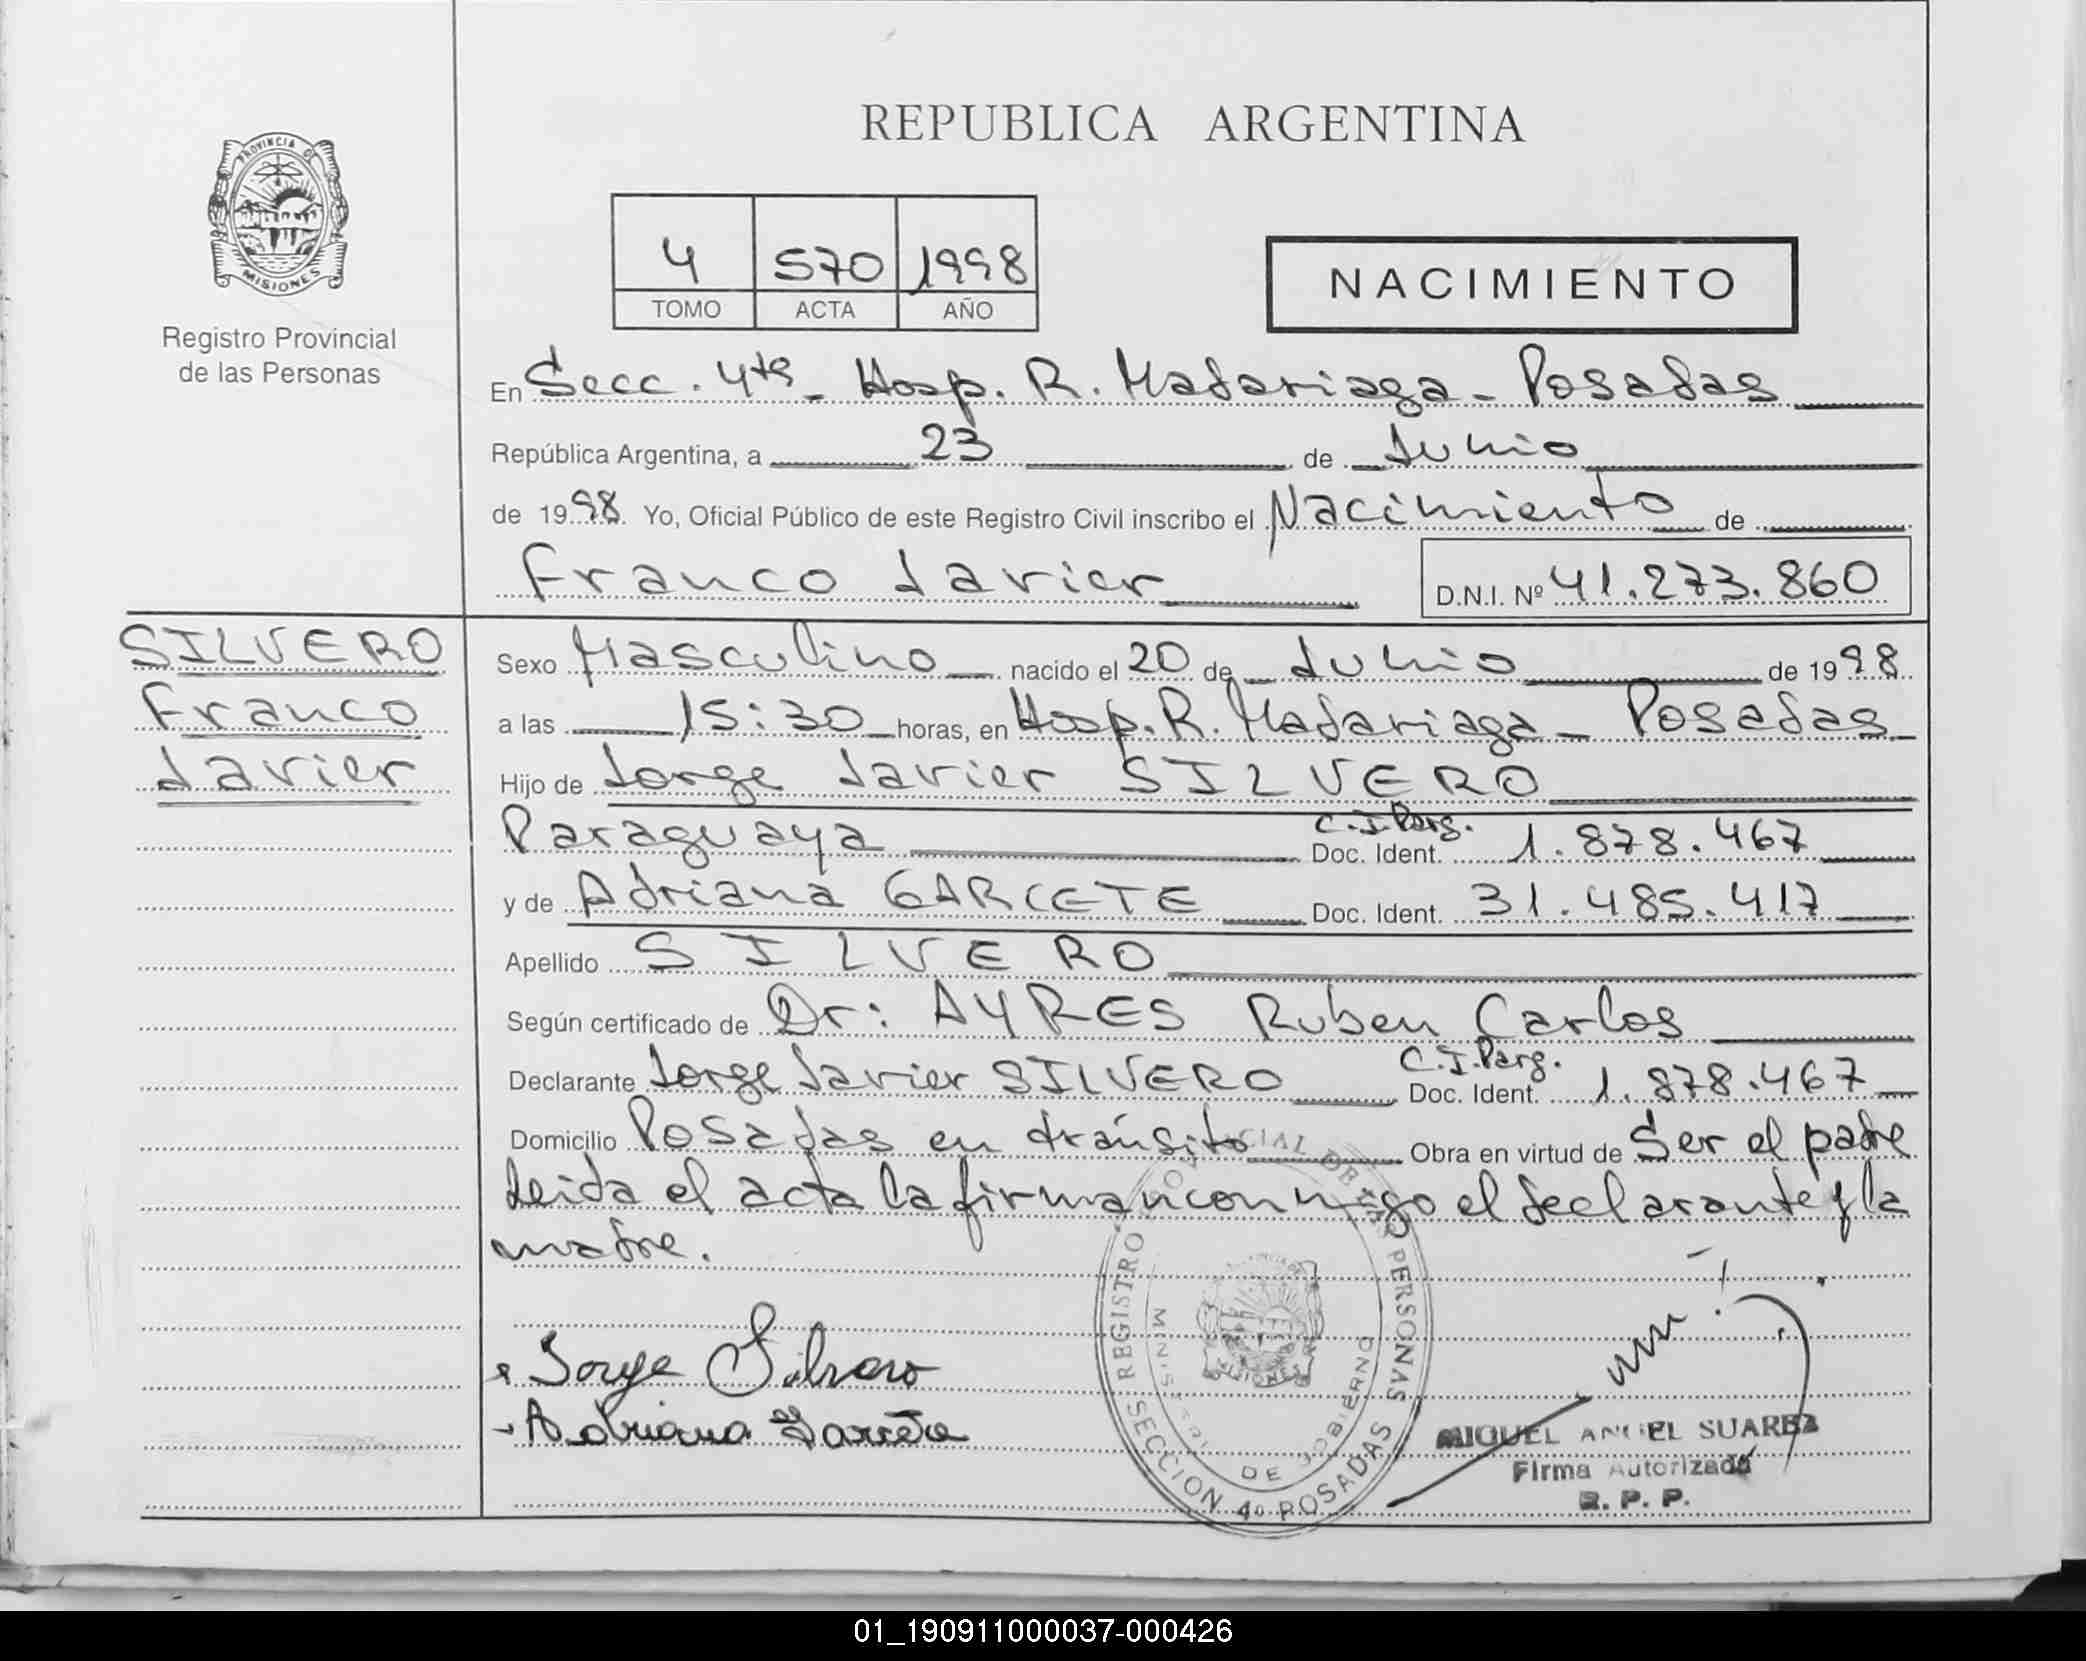 REPUBLICA ARGENTINA
PROVINCIA DE
MISIONES
Registro Provincial
de las Personas
4 570 1998
TOMO ACTA AÑO
NACIMIENTO
En Secc. 4ta - Hosp. R. Madariaga - Posadas
República Argentina, a 23 de Junio
de 1998. Yo, Oficial Público de este Registro Civil inscribo el Nacimiento de
Franco Javier D.N.I. Nº 41.273.860
SILVERO
Franco
Javier
Sexo Masculino nacido el 20 de Junio de 1998
a las 15:30 horas, en Hosp. R. Madariaga - Posadas
Hijo de Jorge Javier SILVERO
Paraguaya C.I. Parg. Doc. Ident. 1.878.467
y de Adriana GARCETE Doc. Ident. 31.485.417
Apellido SILVERO
Según certificado de Dr: AYRES Ruben Carlos
Declarante Jorge Javier SILVERO C.I. Parg. Doc. Ident. 1.878.467
Domicilio Posadas en tránsito Obra en virtud de Ser el padre
Leida el acta la firman conmigo el declarante y la
madre.
Jorge Silvero
Adriana Garcete
REGISTRO PROVINCIAL DE LAS PERSONAS
MINISTERIO DE GOBIERNO
SECCION 4º POSADAS
MIGUEL ANGEL SUAREZ
Firma Autorizada
R. P. P.
01_190911000037-000426